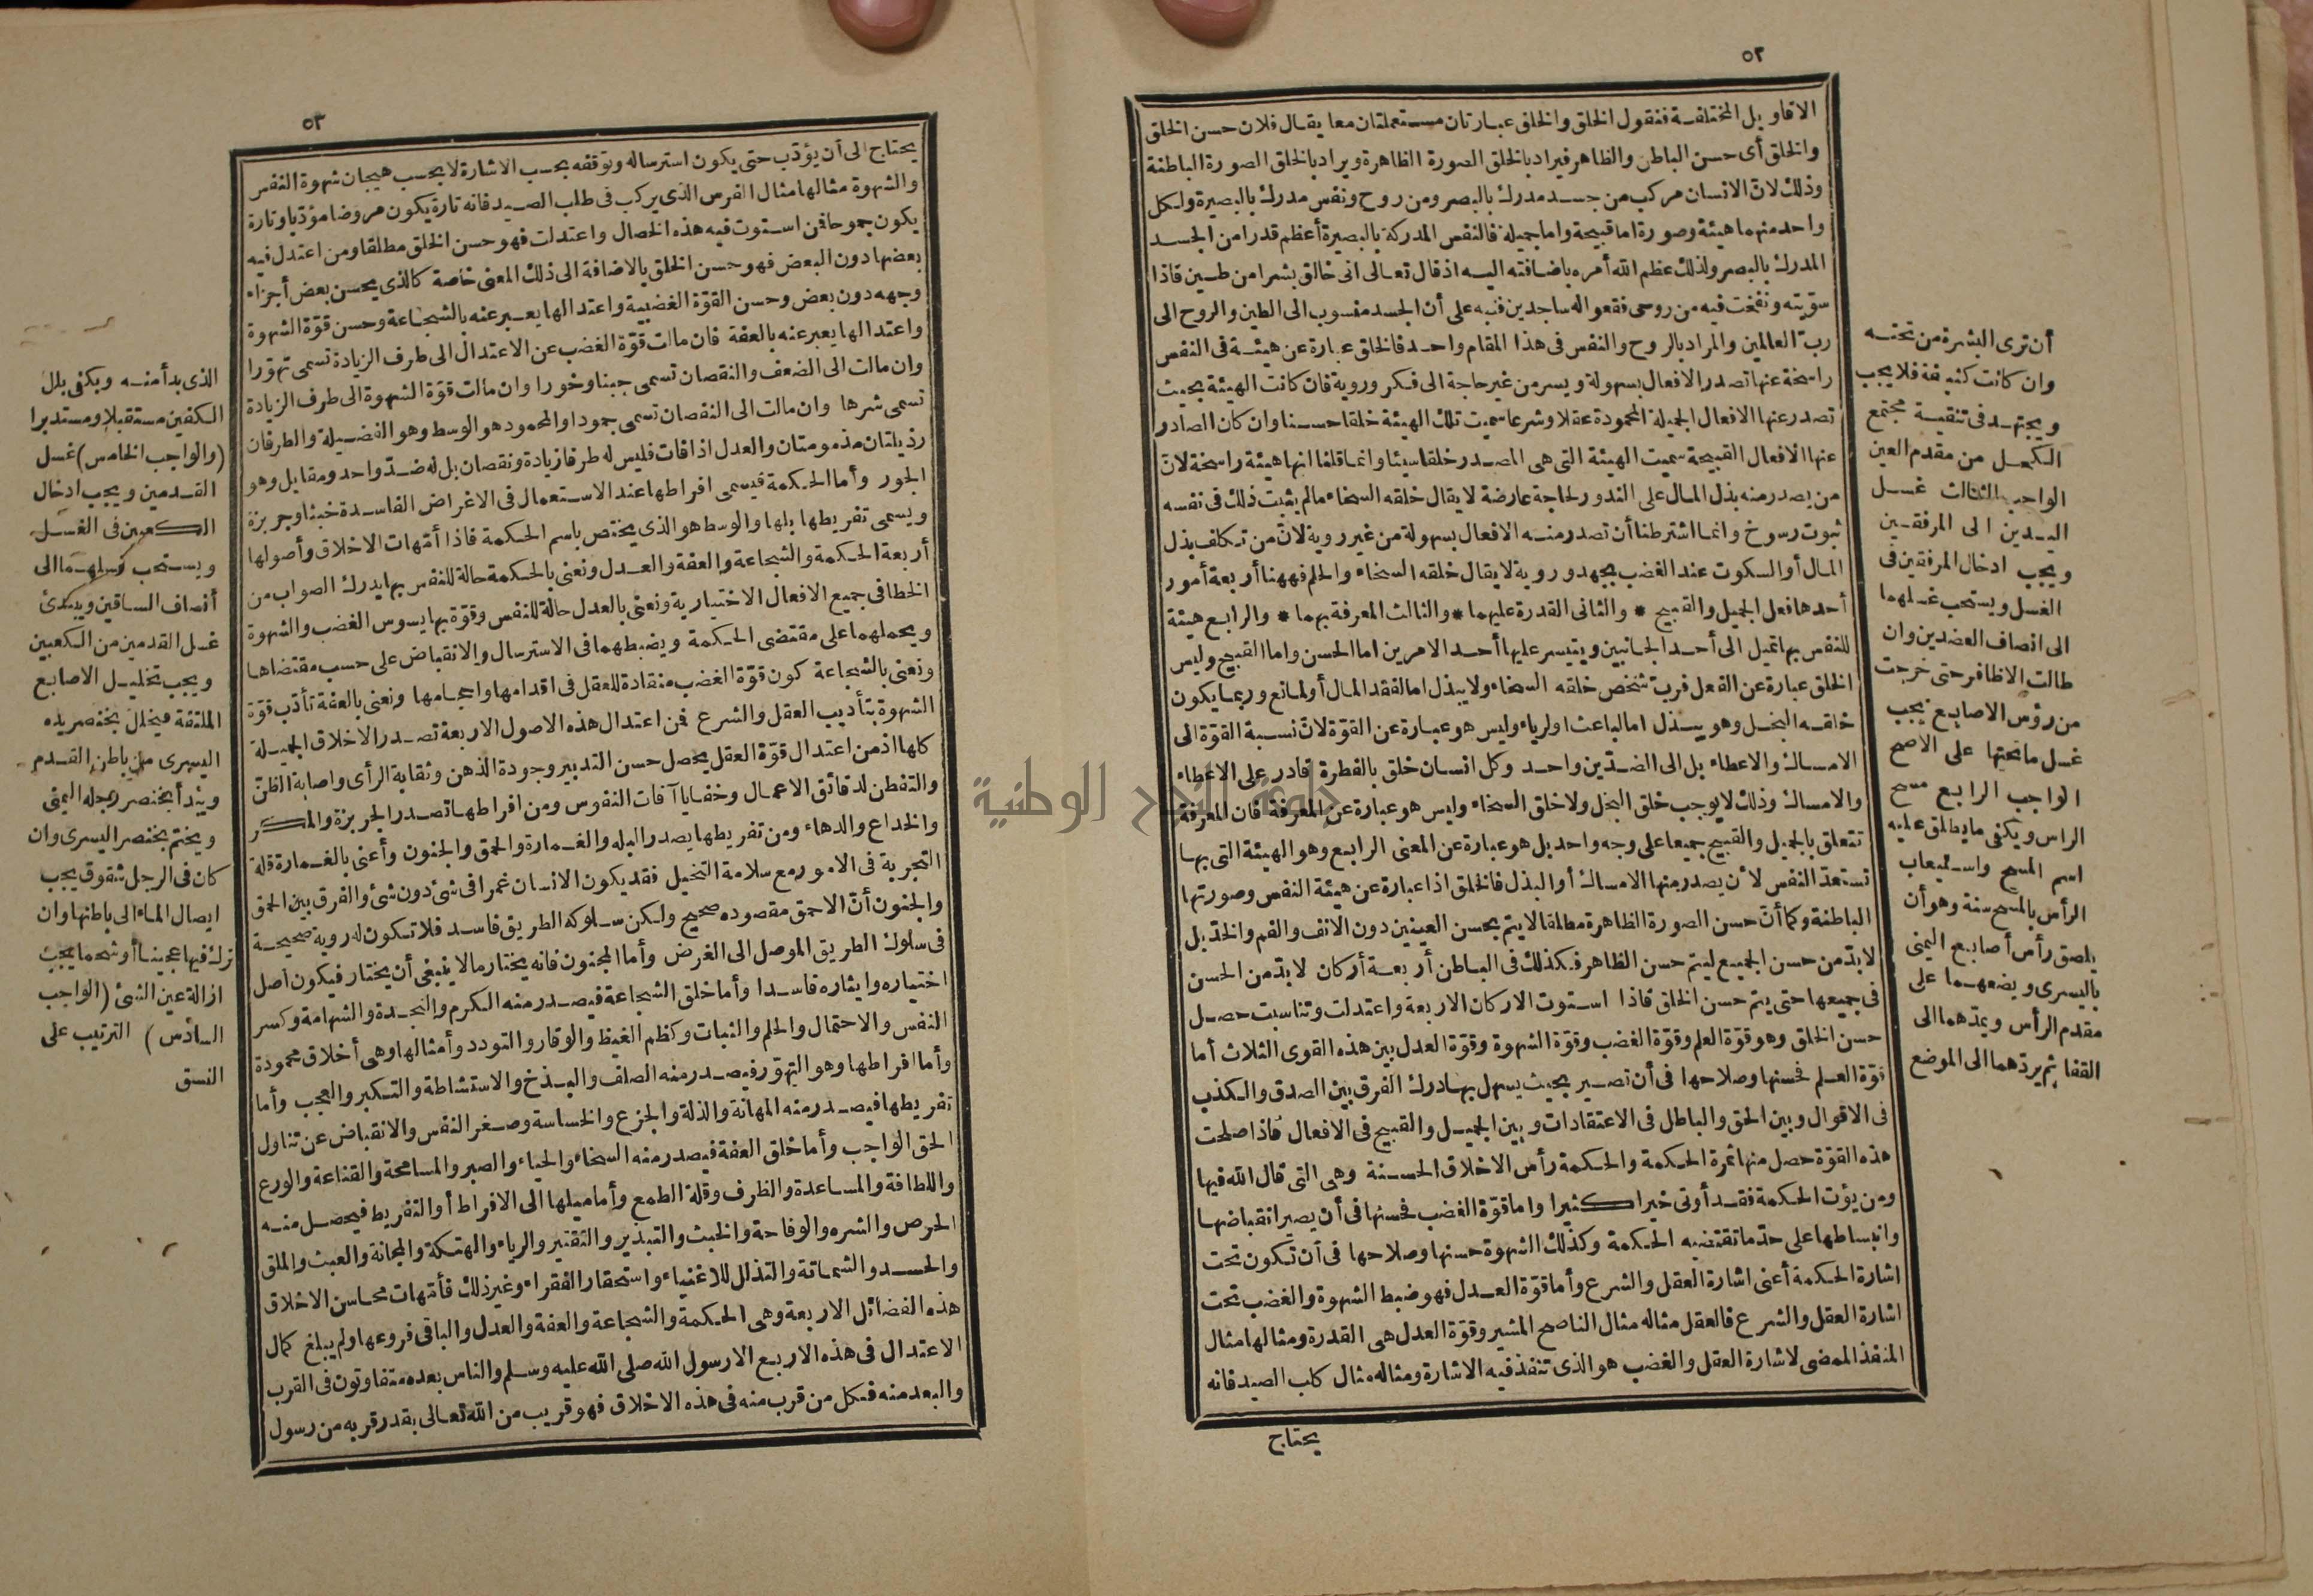 ٥٢
الاقاويل المختلفة فنقول الخلق والخلق عبارتان مستعملتان معا يقال فلان حسن الخلق
والخلق أى حسن الباطن والظاهر فيراد بالخلق الصورة الظاهرة ويراد بالخلق الصورة الباطنة
وذلك لان الانسان مركب من جسد مدرك بالبصر ومن روح ونفس مدرك بالبصيرة ولكل
واحد منهما هيئة وصورة اما قبيحة واما جميلة فالنفس المدركة بالبصيرة أعظم قدرا من الجسد
المدرك بالبصر ولذلك عظم الله أمره باضافته اليه اذ قال تعالى انى خالق بشرا من طين فاذا
سوّيته ونفخت فيه من روحى فقعوا له ساجدين فنبه على أن الجسد منسوب الى الطين والروح الى
رب العالمين والمراد بالروح والنفس فى هذا المقام واحد فالخلق عبارة عن هيئة فى النفس
راسخة عنها تصدر الافعال بسهولة ويسر من غير حاجة الى فكر وروية فان كانت الهيئة بحيث
تصدر عنها الافعال الجميلة المحمودة عقلا وشرعا سميت تلك الهيئة خلقا حسنا وان كان الصادر
عنها الافعال القبيحة سميت الهيئة التى هى المصدر خلقا سيئا وانما قلنا انها هيئة راسخة لان
من يصدر منه بذل المال على الندور لحاجة عارضة لا يقال خلقه السخاء مالم يثبت ذلك فى نفسه
ثبوت رسوخ وانما اشترطنا أن تصدر منه الافعال بسهولة من غير روية لان من تكلف بذل
المال أو السكوت عند الغضب بجهد وروية لا يقال خلقه السخاء والحلم فههنا أربعة أمور
أحدها فعل الجميل والقبيح * والثانى القدرة عليهما * والثالث المعرفة بهما * والرابع هيئة
للنفس بها تميل الى أحد الجانبين ويتيسر عليها أحد الامرين اما الحسن واما القبيح وليس
الخلق عبارة عن الفعل فرب شخص خلقه السخاء ولا يبذل اما لفقد المال أو لمانع وربما يكون
خلقه البخل وهو يبذل اما لباعث او لرياء وليس هو عبارة عن القوّة لان نسبة القوّة الى
الامساك والاعطاء بل الى الضدّين واحد وكل انسان خلق بالفطرة قادر على الاعطاء
والامساك وذلك لا يوجب خلق البخل ولا خلق السخاء وليس هو عبارة عن المعرفة فان المعرفة
تتعلق بالجميل والقبيح جميعا على وجه واحد بل هو عبارة عن المعنى الرابع وهو الهيئة التى بها
تستعدّ النفس لأن يصدر منها الامساك أو البذل فالخلق اذا عبارة عن هيئة النفس وصورتها
الباطنة وكما أن حسن الصورة الظاهرة مطلقا لا يتم بحسن العينين دون الانف والفم والخدّ بل
لا بدّ من حسن الجميع ليتم حسن الظاهر فكذلك فى الباطن أربعة أركان لا بدّ من الحسن
فى جميعها حتى يتم حسن الخلق فاذا استوت الاركان الاربعة واعتدلت وتناسبت حصل
حسن الخلق وهو قوّة العلم وقوّة الغضب وقوّة الشهوة وقوّة العدل بين هذه القوى الثلاث أما
قوّة العلم فحسنها وصلاحها فى أن تصير بحيث يسهل بها درك الفرق بين الصدق والكذب
فى الاقوال وبين الحق والباطل فى الاعتقادات وبين الجميل والقبيح فى الافعال فاذا صلحت
هذه القوّة حصل منها ثمرة الحكمة والحكمة رأس الاخلاق الحسنة وهى التى قال الله فيها
ومن يؤت الحكمة فقد أوتى خيرا كثيرا واما قوّة الغضب فحسنها فى أن يصير انقباضها
وانبساطها على حدّ ما تقتضيه الحكمة وكذلك الشهوة حسنها وصلاحها فى أن تكون تحت
اشارة الحكمة أعنى اشارة العقل والشرع وأما قوّة العدل فهو ضبط الشهوة والغضب تحت
اشارة العقل والشرع فالعقل مثاله مثال الناصح المشير وقوّة العدل هى القدرة ومثالها مثال
المنفذ الممضى لاشارة العقل والغضب هو الذى تنفذ فيه الاشارة ومثاله مثال كلب الصيد فانه
يحتاج
أن ترى البشرة من تحته
وان كانت كثيفة فلا يجب
ويجتهد فى تنقية مجتمع
الكحل من مقدم العين
الواجب الثالث غسل
اليدين الى المرفقين
ويجب ادخال المرفقين فى
الغسل ويستحب غسلهما
الى انصاف العضدين وان
طالت الاظافر حتى خرجت
من رؤس الاصابع يجب
غسل ما تحتها على الاصح
الواجب الرابع مسح
الراس ويكفى ما يطلق عليه
اسم المسح واستيعاب
الرأس بالمسح سنة وهو أن
يلصق رأس أصابع اليمنى
باليسرى ويضعهما على
مقدم الرأس ويمدّهما الى
القفا ثم يردّهما الى الموضع
٥٣
يحتاج الى أن يؤدّب حتى يكون استرساله وتوقفه بحسب الاشارة لا بحسب هيجان شهوة النفس
والشهوة مثالها مثال الفرس الذى يركب فى طلب الصيد فانه تارة يكون مروضا مؤدّبا وتارة
يكون جموحا فمن استوت فيه هذه الخصال واعتدلت فهو حسن الخلق مطلقا ومن اعتدل فيه
بعضها دون البعض فهو حسن الخلق بالاضافة الى ذلك المعنى خاصة كالذى يحسن بعض أجزاء
وجهه دون بعض وحسن القوّة الغضبية واعتدالها يعبر عنه بالشجاعة وحسن قوّة الشهوة
واعتدالها يعبر عنه بالعفة فان مالت قوّة الغضب عن الاعتدال الى طرف الزيادة تسمى تهوّرا
وان مالت الى الضعف والنقصان تسمى جبنا وخورا وان مالت قوّة الشهوة الى طرف الزيادة
تسمى شرها وان مالت الى النقصان تسمى جمودا والمحمود هو الوسط وهو الفضيلة والطرفان
رذيلتان مذمومتان والعدل اذا فات فليس له طرفا زيادة ونقصان بل له ضدّ واحد ومقابل وهو
الجور وأما الحكمة فيسمى افراطها عند الاستعمال فى الاغراض الفاسدة خبثا وجربزة
ويسمى تفريطها بلها والوسط هو الذى يختص باسم الحكمة فاذا أمّهات الاخلاق وأصولها
أربعة الحكمة والشجاعة والعفة والعدل ونعنى بالحكمة حالة للنفس بها يدرك الصواب من
الخطا فى جميع الافعال الاختيارية ونعنى بالعدل حالة للنفس وقوّة بها يسوس الغضب والشهوة
ويحملهما على مقتضى الحكمة ويضبطهما فى الاسترسال والانقباض على حسب مقتضاها
ونعنى بالشجاعة كون قوّة الغضب منقادة للعقل فى اقدامها واحجامها ونعنى بالعفة تأدّب قوّة
الشهوة بتأديب العقل والشرع فمن اعتدال هذه الاصول الاربعة تصدر الاخلاق الجميلة
كلها اذ من اعتدال قوّة العقل يحصل حسن التدبير وجودة الذهن وثقابة الرأى واصابة الظنّ
والتفطن لدقائق الاعمال وخفايا آفات النفوس ومن افراطها تصدر الجربزة والمكر
والخداع والدهاء ومن تفريطها يصدر البله والغمارة والحمق والجنون وأعنى بالغمارة قلة
التجربة فى الامور مع سلامة التخيل فقد يكون الانسان غمرا فى شئ دون شئ والفرق بين الحمق
والجنون أنّ الاحمق مقصوده صحيح ولكن سلوكه الطريق فاسد فلا تكون له روية صحيحة
فى سلوك الطريق الموصل الى الغرض وأما المجنون فانه يختار مالا ينبغى أن يختار فيكون أصل
اختياره وايثاره فاسدا وأما خلق الشجاعة فيصدر منه الكرم والنجدة والشهامة وكسر
النفس والاحتمال والحلم والثبات وكظم الغيظ والوقار والتودد وأمثالها وهى أخلاق محمودة
وأما افراطها وهو التهوّر فيصدر منه الصلف والبذخ والاستشاطة والتكبر والعجب وأما
تفريطها فيصدر منه المهانة والذلة والجزع والخساسة وصغر النفس والانقباض عن تناول
الحق الواجب وأما خلق العفة فيصدر منه السخاء والحياء والصبر والمسامحة والقناعة والورع
واللطافة والمساعدة والظرف وقلة الطمع وأما ميلها الى الافراط أو التفريط فيحصل منه
الحرص والشره والوقاحة والخبث والتبذير والتقتير والرياء والهتكة والمجانة والعبث والملق
والحسد والشماتة والتذلل للاغنياء واستحقار الفقراء وغير ذلك فأمّهات محاسن الاخلاق
هذه الفضائل الاربعة وهى الحكمة والشجاعة والعفة والعدل والباقى فروعها ولم يبلغ كمال
الاعتدال فى هذه الاربع الا رسول الله صلى الله عليه وسلم والناس بعده متفاوتون فى القرب
والبعد منه فكل من قرب منه فى هذه الاخلاق فهو قريب من الله تعالى بقدر قربه من رسول
الذى بدأ منه ويكفى بلل
الكفين مستقبلا ومستدبرا
(والواجب الخامس) غسل
القدمين ويجب ادخال
الكعبين فى الغسل
ويستحب غسلهما الى
أنصاف الساقين ويبتدئ
غسل القدمين من الكعبين
ويجب تخليل الاصابع
الملتفة فيخلل بخنصر يده
اليسرى من باطن القدم
ويبدأ بخنصر رجله اليمنى
ويختم بخنصر اليسرى وان
كان فى الرجل شقوق يجب
ايصال الماء الى باطنها وان
ترك فيها عجينا أو شحما يجب
ازالة عين الشئ (الواجب
السادس) الترتيب على
النسق
جامعة النجاح الوطنية